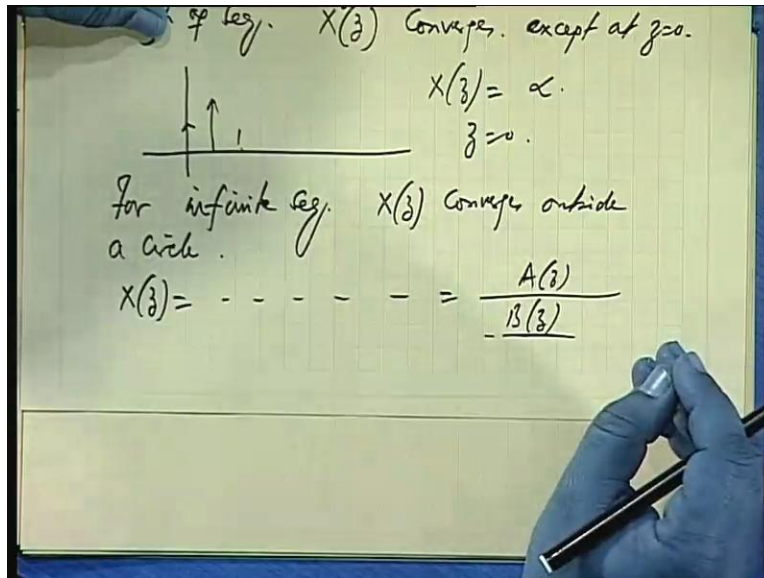 of seq. X(z) Converges. except at z=0.
X(z) = α.
z=0.
For infinite seq. X(z) Converges outside
a circle.
X(z) = - - - - - = A(z)
- B(z)